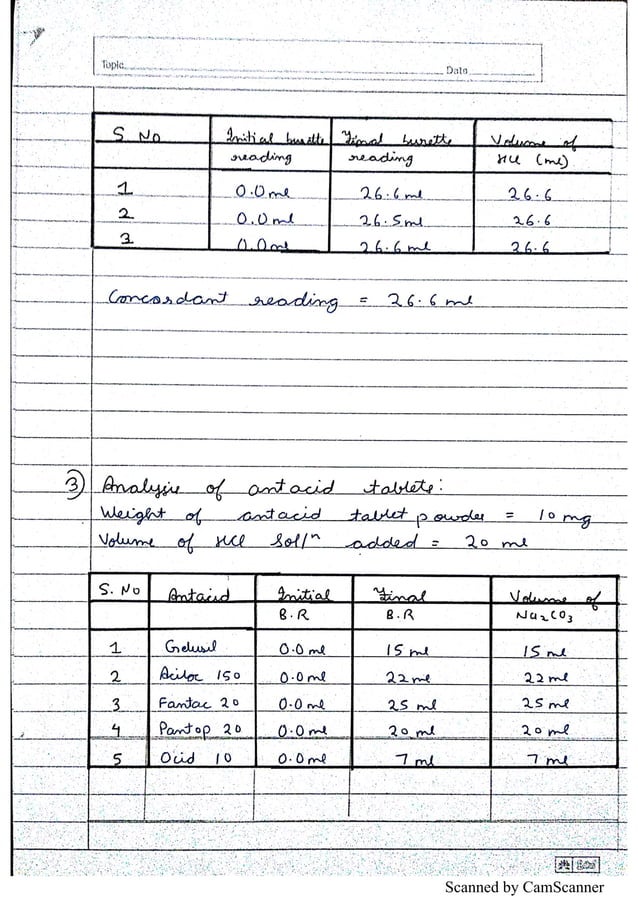 Topic Date
S No Initial burette Final burette Volume of
reading reading HCl (ml)
1 0.0ml 26.6ml 26.6
2 0.0ml 26.5ml 26.6
3 0.0ml 26.6ml 26.6
Concordant reading = 26.6 ml
③ Analysis of antacid tablets:
Weight of antacid tablet powder = 10 mg
Volume of HCl Sol/n added = 20 ml
S. No Antacid Initial Final Volume of
B.R B.R Na2CO3
1 Gelusil 0.0 ml 15 ml 15 ml
2 Aciloc 150 0.0 ml 22 ml 22 ml
3 Fantac 20 0.0 ml 25 ml 25 ml
4 Pantop 20 0.0 ml 20 ml 20 ml
5 Ocid 10 0.0 ml 7 ml 7 ml
Scanned by CamScanner